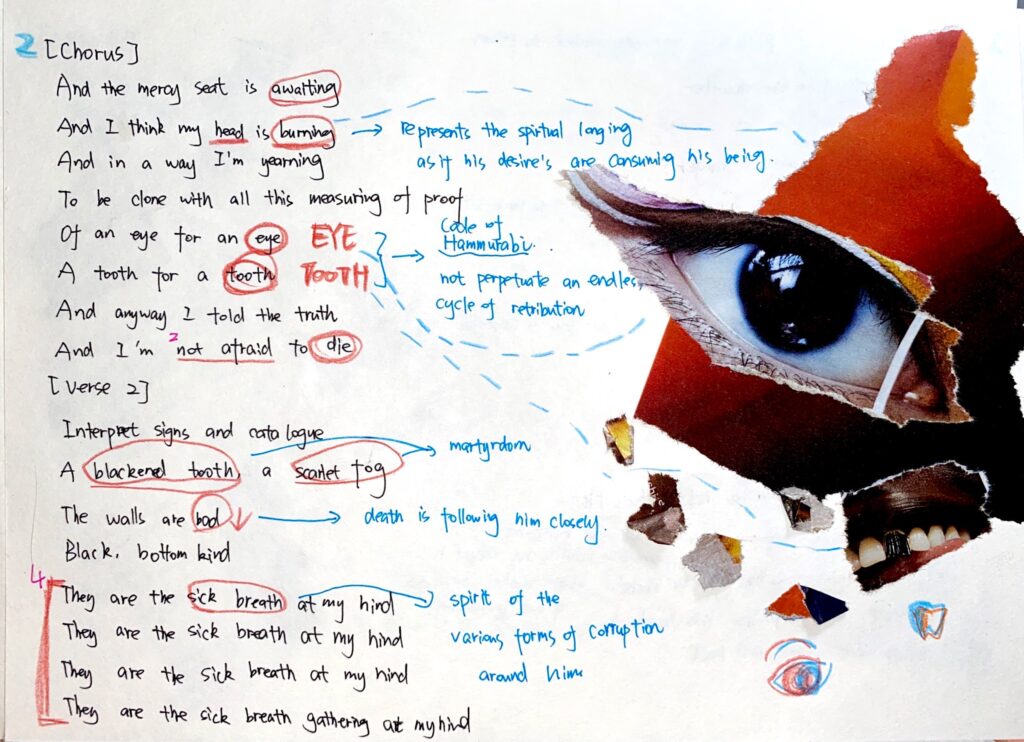 2 [Chorus]
And the mercy seat is awaiting
And I think my head is burning
represents the spirtual longing
as if his desire's are consuming his being.
And in a way I'm yearning
To be done with all this measuring of proof
Of an eye for an eye EYE
A tooth for a tooth TOOTH
Code of
Hammurabi.
not perpetuate an endless
cycle of retribution
And anyway I told the truth
2
And I'm not afraid to die
[Verse 2]
Interpret signs and catalogue
A blackened tooth, a scarlet fog
martyrdom
The walls are bad
death is following him closely.
Black. bottom kind
4
They are the sick breath at my hind
They are the sick breath at my hind
They are the sick breath at my hind
They are the sick breath gathering at my hind
spirit of the
various forms of corruption
around him